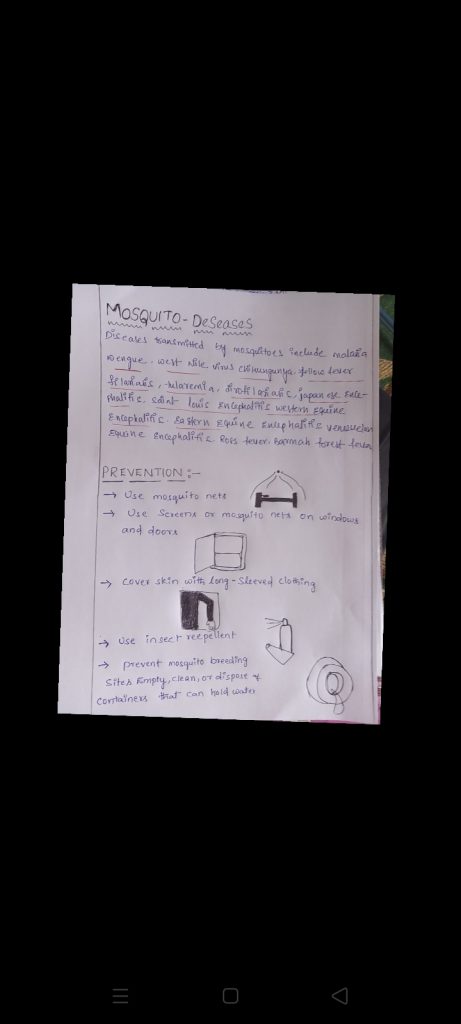 MOSQUITO - DeSeaSeS
Diseases transmitted by mosquitoes include malaria
Dengue. west Nile virus chikungunya. yellow fever
filariasis, tularemia, dirofilariasis, japanese ence-
phalitis. saint louis Encephalitis western Equine
Encephalitis. Eastern Equine Encephalitis venezuelan
Equine Encephalitis Ross fever. Barmah forest fever
PREVENTION :-
→ Use mosquito nets
→ Use Screens or mosquito nets on windows
and doors
→ Cover skin with long-Sleeved clothing
→ Use insect reepellent
→ prevent mosquito breeding
Sites Empty, clean, or dispose of
containers that can hold water